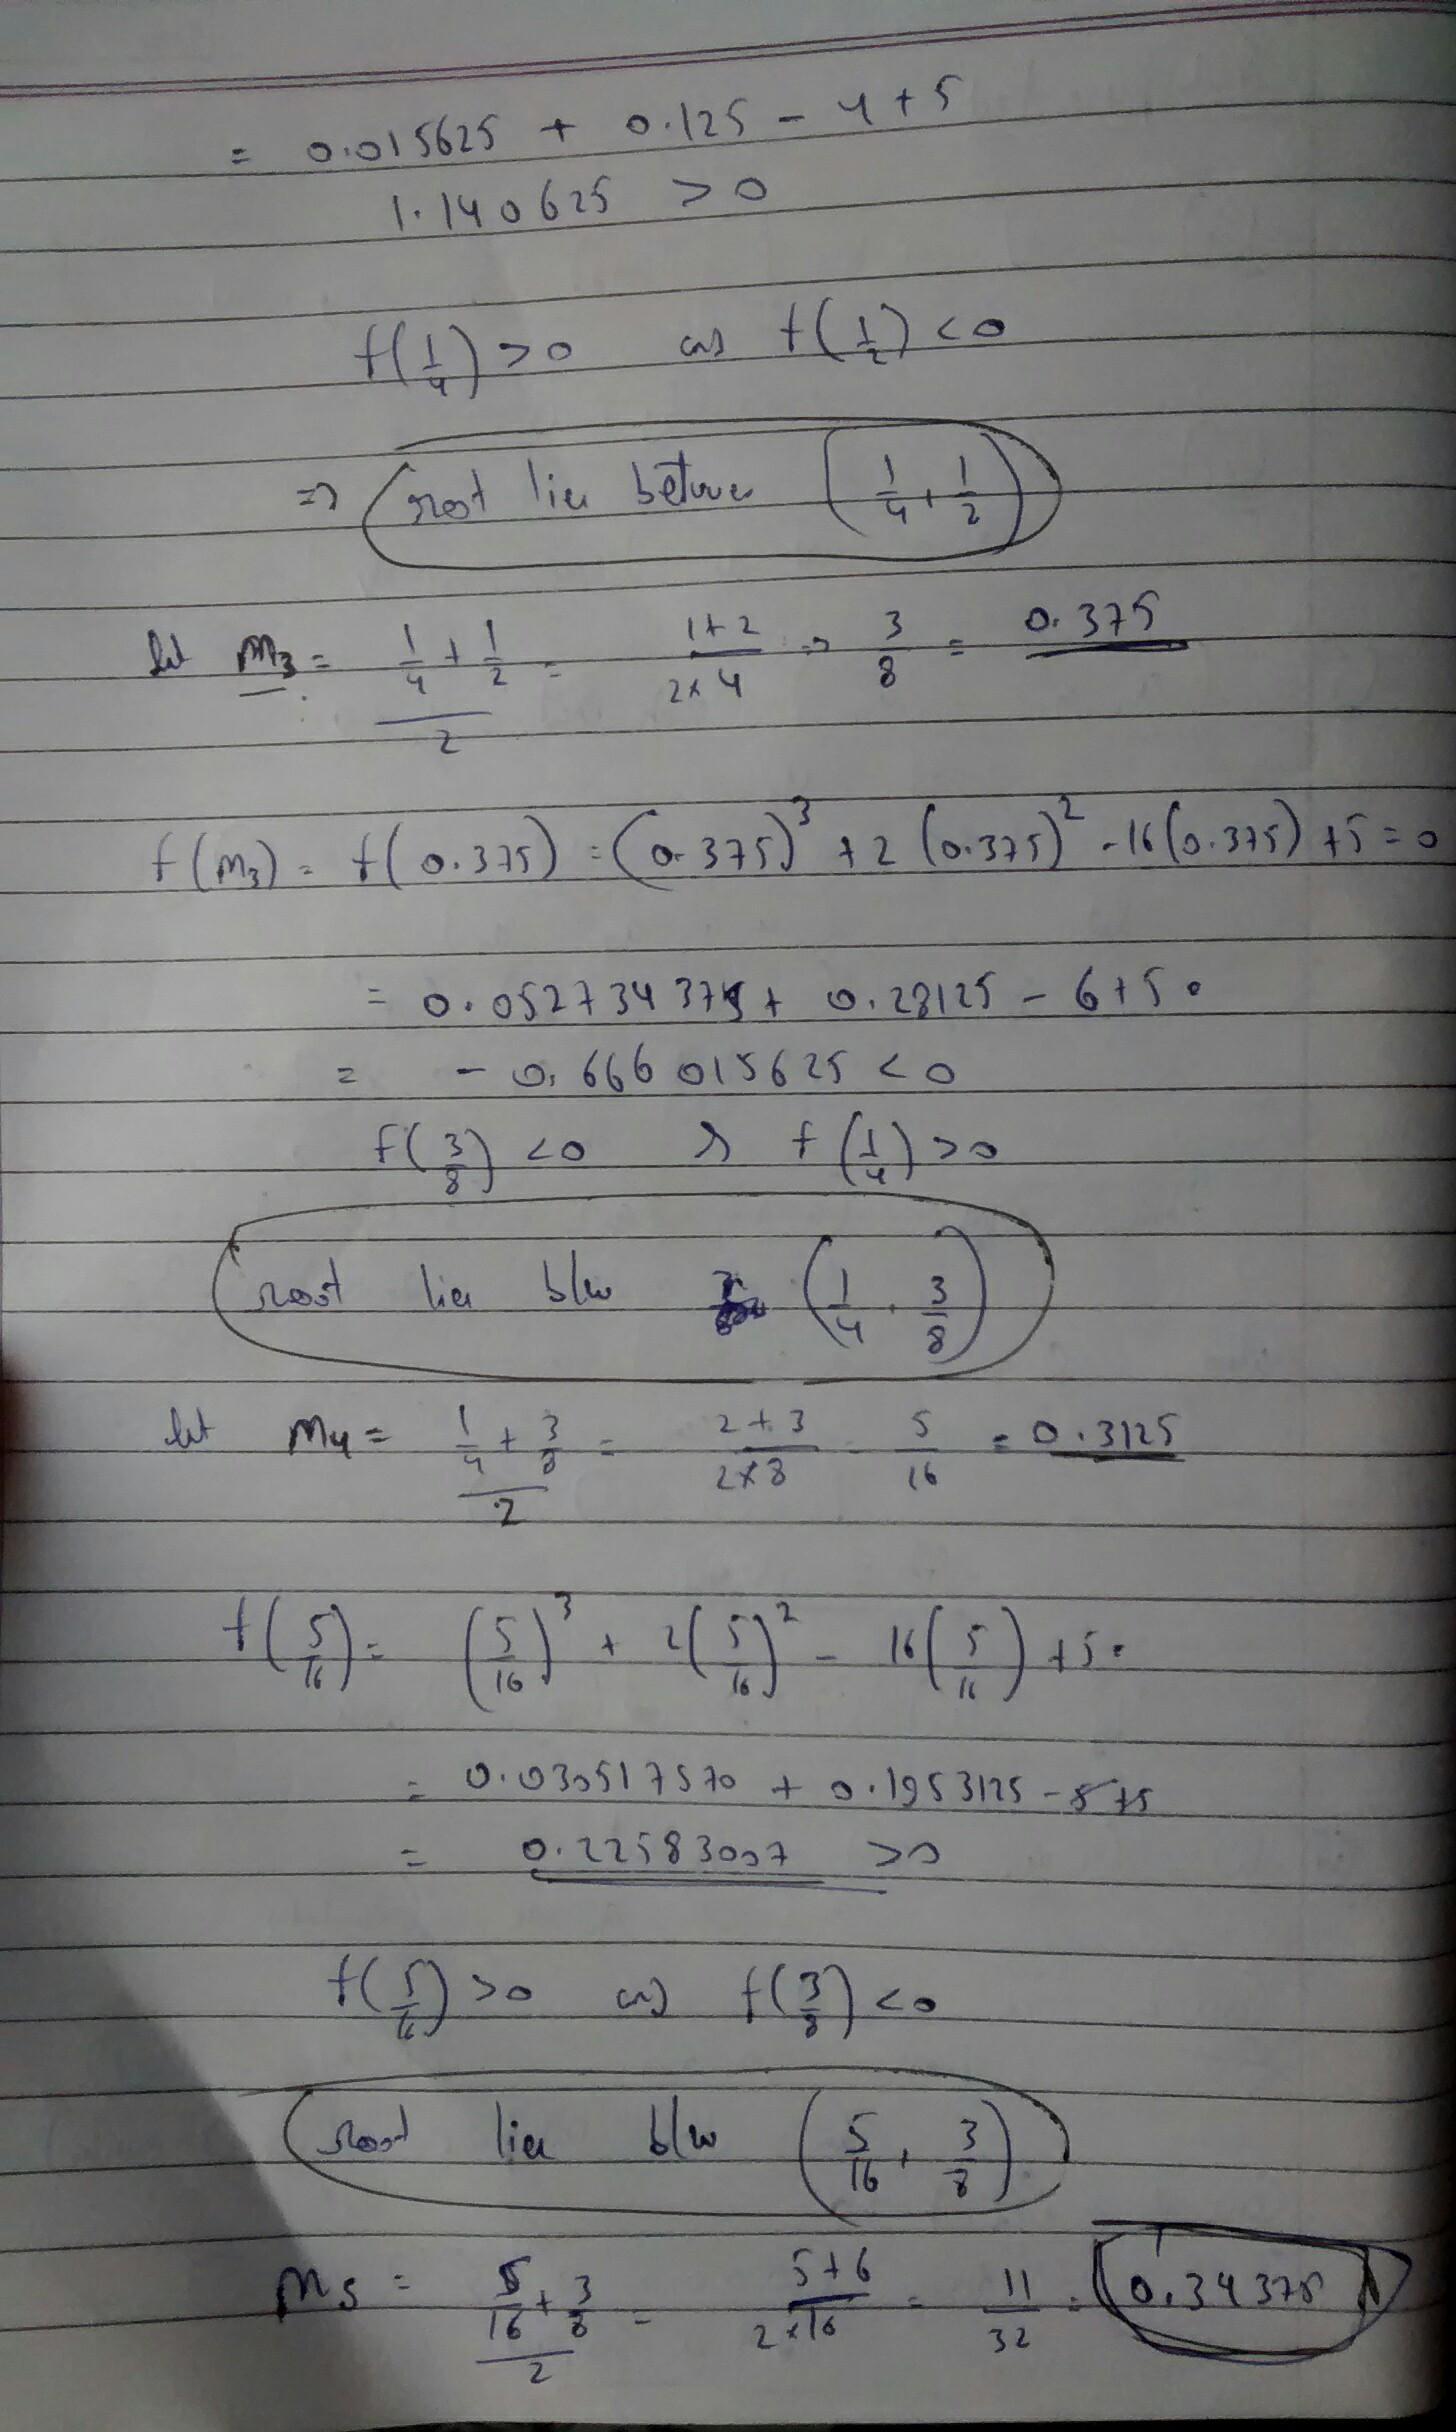 = 0.015625 + 0.125 - 4 + 5
1.140625 > 0
f(1/4) > 0 as f(1/2) < 0
=> root lies between (1/4, 1/2)
let m3 = (1/4 + 1/2)/2 = (1+2)/(2×4) => 3/8 = 0.375
f(m3) = f(0.375) = (0.375)^3 + 2(0.375)^2 - 16(0.375) + 5 = 0
= 0.052734375 + 0.28125 - 6 + 5
= -0.666015625 < 0
f(3/8) < 0 & f(1/4) > 0
root lies b/w (1/4, 3/8)
let m4 = (1/4 + 3/8)/2 = (2+3)/(2×8) = 5/16 = 0.3125
f(5/16) = (5/16)^3 + 2(5/16)^2 - 16(5/16) + 5
= 0.030517570 + 0.1953125 - 5 + 5
= 0.22583007 > 0
f(5/16) > 0 as f(3/8) < 0
root lies b/w (5/16, 3/8)
m5 = (5/16 + 3/8)/2 = (5+6)/(2×16) = 11/32 = 0.34375